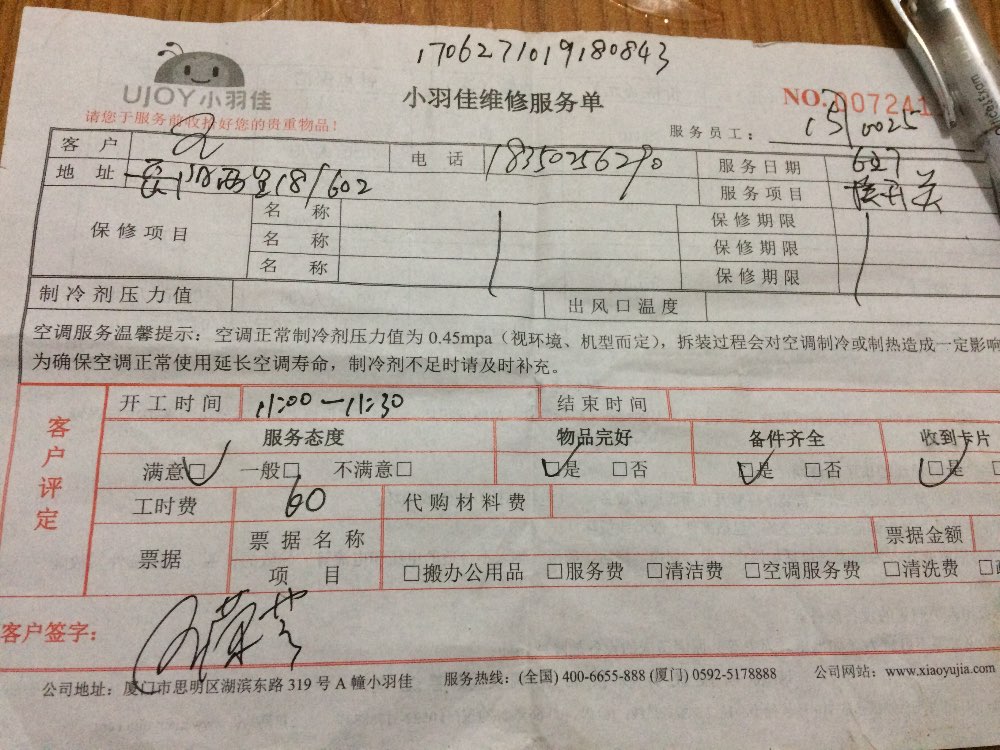 1706271019180843
UJOY小羽佳
小羽佳维修服务单
NO.007241
请您于服务前收检好您的贵重物品!
服务员工: 0025
客户 电话 18350256290 服务日期 627
地址 18/602 服务项目 换开关
保修项目 名称 保修期限
名称 保修期限
名称 保修期限
制冷剂压力值 出风口温度
空调服务温馨提示:空调正常制冷剂压力值为 0.45mpa(视环境、机型而定),拆装过程会对空调制冷或制热造成一定影响
为确保空调正常使用延长空调寿命,制冷剂不足时请及时补充。
客户评定
开工时间 11:00—11:30 结束时间
服务态度 物品完好 备件齐全 收到卡片
满意□ 一般□ 不满意□ □是 □否 □是 □否 □是
工时费 60 代购材料费
票据 票据名称 票据金额
项目 □搬办公用品 □服务费 □清洁费 □空调服务费 □清洗费
客户签字:
公司地址:厦门市思明区湖滨东路 319 号 A 幢小羽佳 服务热线:(全国) 400-6655-888 (厦门) 0592-5178888 公司网站:www.xiaoyujia.com